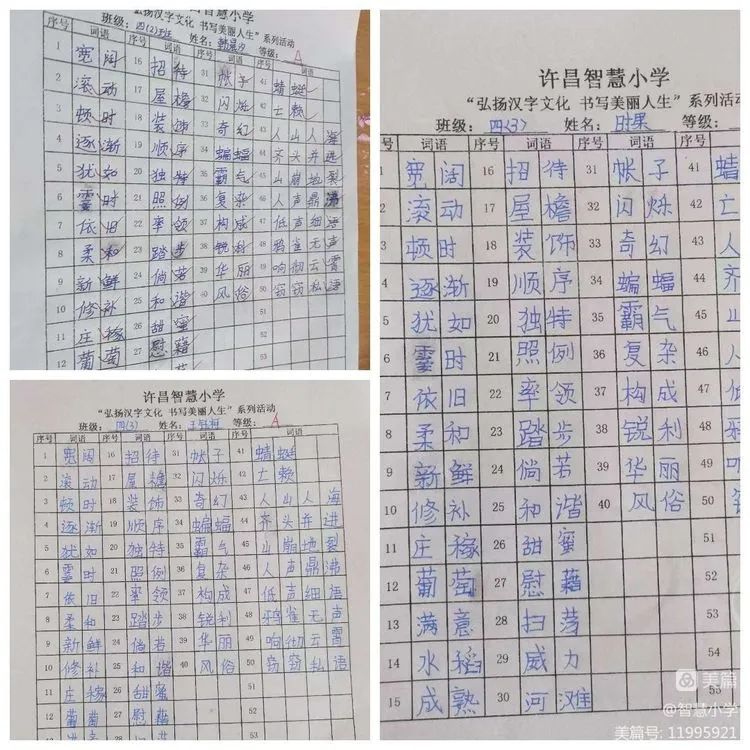 智慧小学
“弘扬汉字文化 书写美丽人生”系列活动
班级：四(2)班 姓名： 等级：A
序号 词语 序号 词语 序号 词语 序号 词语
1 宽阔 16 招待 31 帐子 41 蜻蜓
2 滚动 17 屋檐 32 闪烁 42 亡赖
3 顿时 18 装饰 33 奇幻 43 人山人海
4 逐渐 19 顺序 34 蝙蝠 44 齐头并进
5 犹如 20 独特 35 霸气 45 山崩地裂
6 霎时 21 照例 36 复杂 46 人声鼎沸
7 依旧 22 率领 37 构成 47 低声细语
8 柔和 23 踏步 38 锐利 48 鸦雀无声
9 新鲜 24 倘若 39 华丽 49 响彻云霄
10 修补 25 和谐 40 风俗 50 窃窃私语
11 庄稼 26 甜蜜 51
12 葡萄 27 慰藉 52
53
许昌智慧小学
“弘扬汉字文化 书写美丽人生”系列活动
班级：四(3) 姓名： 等级：A
序号 词语 序号 词语 序号 词语 序号 词语
1 宽阔 16 招待 31 帐子 41 蜻蜓
2 滚动 17 屋檐 32 闪烁 42 亡赖
3 顿时 18 装饰 33 奇幻 43 人山人海
4 逐渐 19 顺序 34 蝙蝠 44 齐头并进
5 犹如 20 独特 35 霸气 45 山崩地裂
6 霎时 21 照例 36 复杂 46 人声鼎沸
7 依旧 22 率领 37 构成 47 低声细语
8 柔和 23 踏步 38 锐利 48 鸦雀无声
9 新鲜 24 倘若 39 华丽 49 响彻云霄
10 修补 25 和谐 40 风俗 50 窃窃私语
11 庄稼 26 甜蜜 51
12 葡萄 27 慰藉 52
53
许昌智慧小学
“弘扬汉字文化 书写美丽人生”系列活动
班级：四(3) 姓名：时果 等级：
号 词语 序号 词语 序号 词语 序号
1 宽阔 16 招待 31 帐子 41 蜻
2 滚动 17 屋檐 32 闪烁 42 亡
3 顿时 18 装饰 33 奇幻 43 人
4 逐渐 19 顺序 34 蝙蝠 44 齐
5 犹如 20 独特 35 霸气 45 山
6 霎时 21 照例 36 复杂 46 人
7 依旧 22 率领 37 构成 47 低
8 柔和 23 踏步 38 锐利 48 鸦
9 新鲜 24 倘若 39 华丽 49 响
10 修补 25 和谐 40 风俗 50
11 庄稼 26 甜蜜 51
12 葡萄 27 慰藉 52
13 满意 28 扫荡 53
14 水稻 29 威力
15 成熟 30 河滩 55
美篇
@智慧小学
美篇号: 11995921